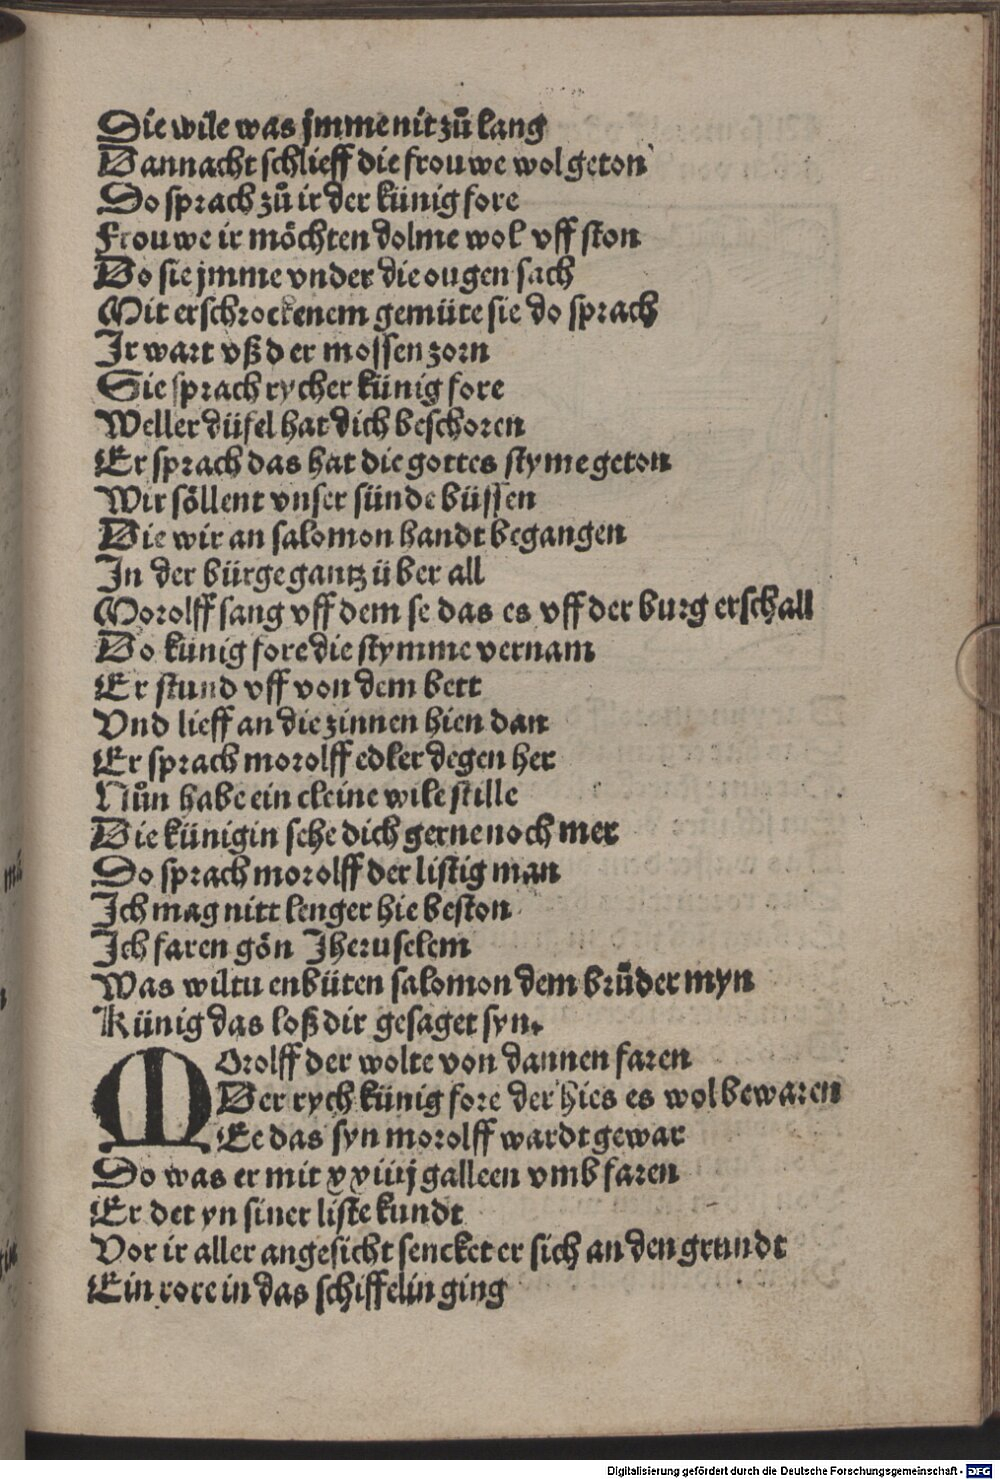 Die wile was jmme nit zů lang
Dannacht schlieff die frouwe wol geton
Do sprach zů ir der künig fore
Frouwe ir möchten dolme wol vff ston
Do sie jmme vnder die ougen sach
Mit erschrockenem gemüte sie do sprach
Ir wart vß der mossen zorn
Sie sprach rycher künig fore
Weller düfel hat dich beschoren
Er sprach das hat die gottes styme geton
Wir söllent vnser sünde büssen
Die wir an salomon handt begangen
In der bürge gantz über all
Morolff sang vff dem se das es vff der burg erschall
Do künig fore die stymme vernam
Er stund vff von dem bett
Vnd lieff an die zinnen hien dan
Er sprach morolff edler degen her
Nůn habe ein cleine wile stille
Die künigin sehe dich gerne noch mer
Do sprach morolff der listig man
Ich mag nitt lenger hie beston
Ich faren gön Jheruselem
Was wiltu enbüten salomon dem brůder myn
Künig das loß dir gesaget syn.
Morolff der wolte von dannen faren
Der rych künig fore der hies es wol bewaren
Ee das syn morolff wardt gewar
Do was er mit xxiiij galleen vmb faren
Er det yn siner liste kundt
Vor ir aller angesicht sencket er sich an den grundt
Ein rore in das schiffelin ging
Digitalisierung gefördert durch die Deutsche Forschungsgemeinschaft - DFG